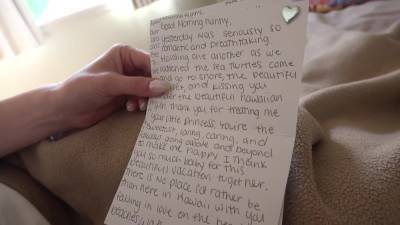 Good Morning hunny,
yesterday was seriously so
romantic and breathtaking
Holding one another as we
watched the sea turtles come
and go to shore, the beautiful
and kissing you
the beautiful hawaiian
thank you for treating me
your little princess. You're the
sweetest, loving, caring, and
always going above and beyond
to make me happy I thank
you so much baby for this
beautiful vacation together.
There is No place I'd rather be
than here in Hawaii with you
falling in love on the
beaches